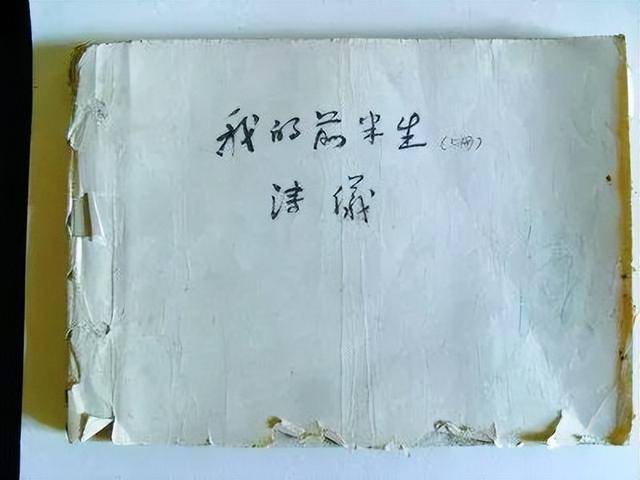 我的前半生（上册）
溥儀